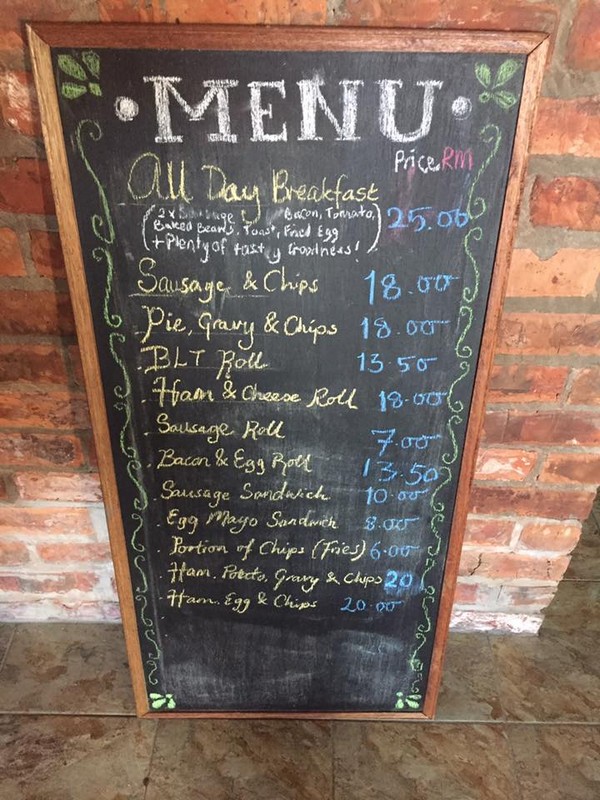 • MENU •
Price RM
All Day Breakfast
(2x Sausage Bacon, Tomato, 25.00
Baked Beans, Toast, Fried Egg
+ Plenty of tasty Goodness!)
Sausage & Chips 18.00
Pie, Gravy & Chips 18.00
BLT Roll 13.50
Ham & Cheese Roll 18.00
Sausage Roll 7.00
Bacon & Egg Roll 13.50
Sausage Sandwich 10.00
Egg Mayo Sandwich 8.00
Portion of Chips (Fries) 6.00
Ham, Potato, Gravy & Chips 20
Ham, Egg & Chips 20.00